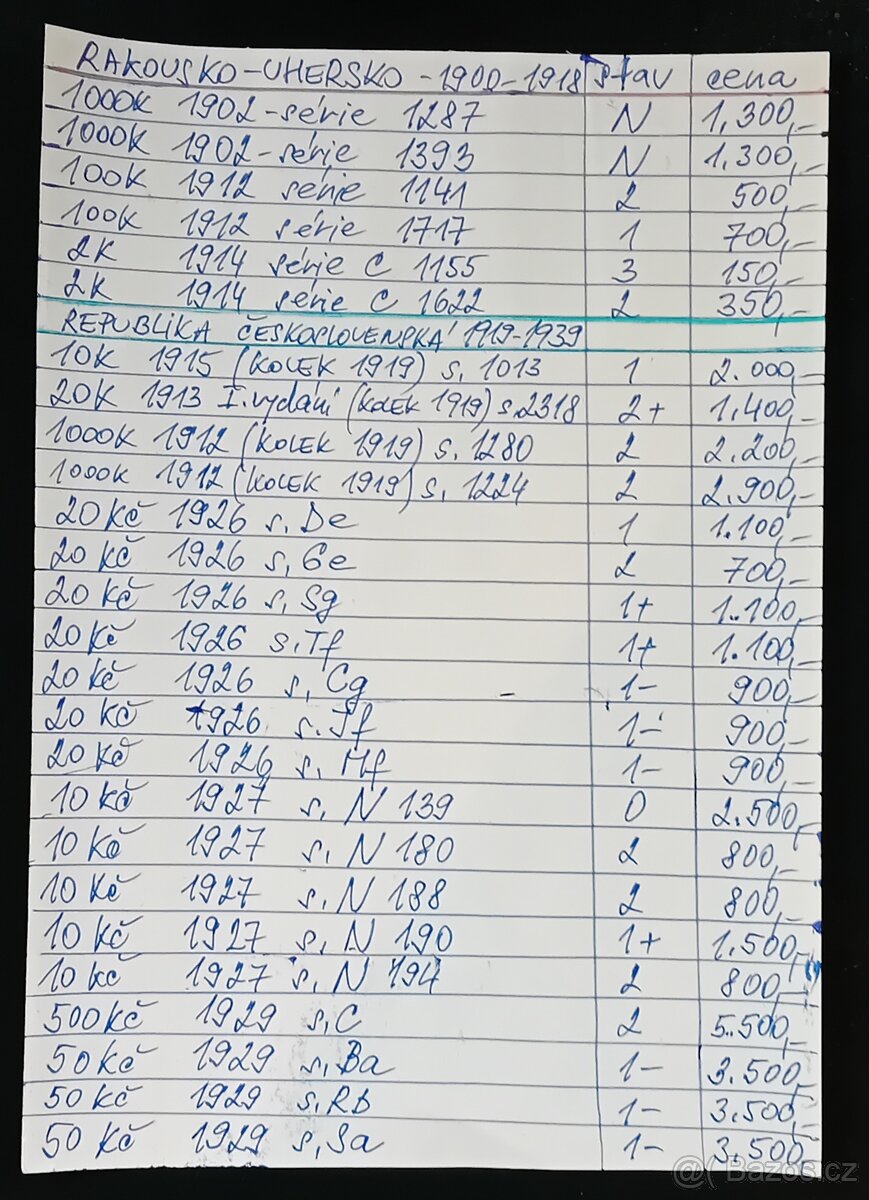 RAKOUSKO-UHERSKO - 1900-1918 stav cena
1000K 1902-série 1287 N 1,300,-
1000K 1902-série 1393 N 1,300,-
100K 1912 série 1141 2 500,-
100K 1912 série 1717 1 700,-
2K 1914 série C 1155 3 150,-
2K 1914 série C 1622 2 350,-
REPUBLIKA ČESKOSLOVENSKÁ 1919-1939
10K 1915 (KOLEK 1919) s, 1013 1 2.000,-
20K 1913 I. vydání (KOLEK 1919) s.2318 2+ 1.400,-
1000K 1912 (KOLEK 1919) s, 1280 2 2.200,-
1000K 1912 (KOLEK 1919) s, 1224 2 2.900,-
20 Kč 1926 s, De 1 1.100,-
20 Kč 1926 s, Ge 2 700,-
20 Kč 1926 s, Sg 1+ 1.100,-
20 Kč 1926 s.Tf 1+ 1.100,-
20 Kč 1926 s, Cg 1- 900,-
20 Kč 1926 s.Jf 1- 900,-
20 Kč 1926 s, Mf 1- 900,-
10 Kč 1927 s, N 139 0 2.500,-
10 Kč 1927 s, N 180 2 800,-
10 Kč 1927 s, N 188 2 800,-
10 Kč 1927 s, N 190 1+ 1.500,-
10 Kč 1927 s, N 194 2 800,-
500 Kč 1929 s, C 2 5.500,-
50 Kč 1929 s, Ba 1- 3.500,-
50 Kč 1929 s.Rb 1- 3.500,-
50 Kč 1929 s, Sa 1- 3.500,-
@( Bazoš.cz